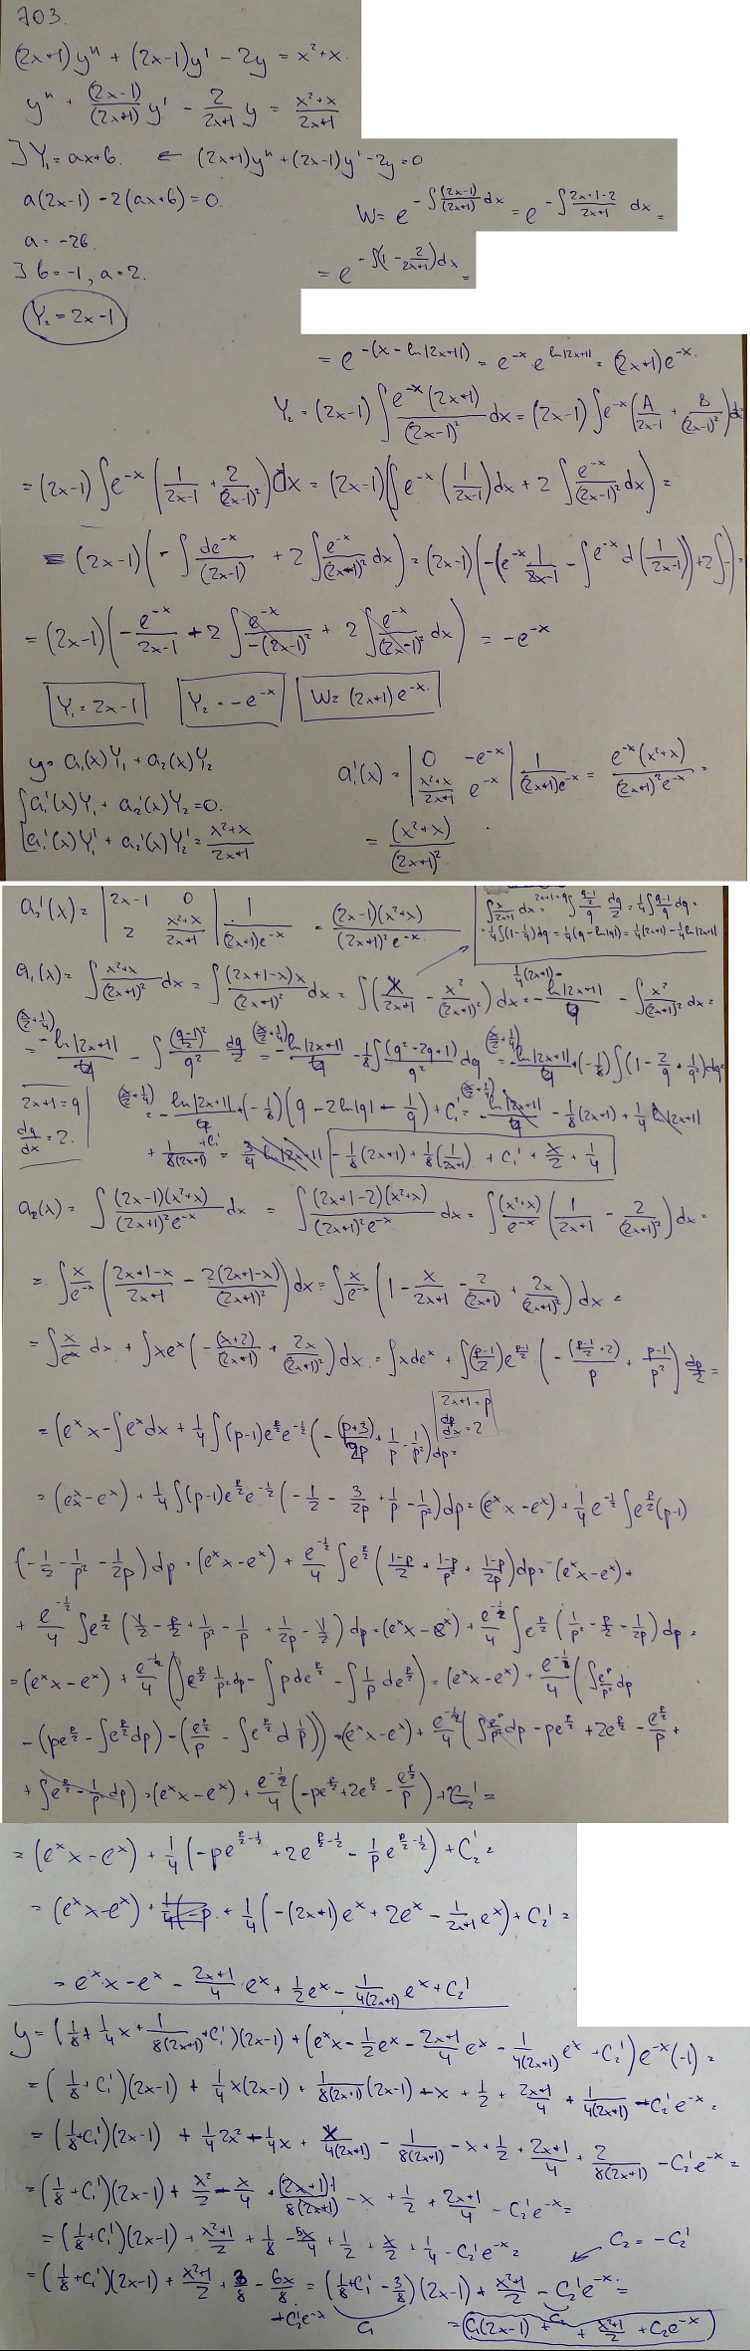 703.
(2x+1)y'' + (2x-1)y' - 2y = x²+x.
y'' + (2x-1)/(2x+1) y' - 2/(2x+1) y = (x²+x)/(2x+1)
] Y₁ = ax+b. ← (2x+1)y'' + (2x-1)y' - 2y = 0
a(2x-1) - 2(ax+b) = 0.
W = e^(-∫(2x-1)/(2x+1) dx) = e^(-∫(2x+1-2)/(2x+1) dx) =
a = -2b.
] b = -1, a = 2.
= e^(-∫(1 - 2/(2x+1))dx) =
Y₂ = 2x-1
= e^(-(x - ln|2x+1|)) = e^(-x) e^(ln|2x+1|) = (2x+1)e^(-x).
Y₂ = (2x-1) ∫ e^(-x)(2x+1)/(2x-1)² dx = (2x-1) ∫ e^(-x) (A/(2x-1) + B/(2x-1)²) dx
= (2x-1) ∫ e^(-x) (1/(2x-1) + 2/(2x-1)²) dx = (2x-1) (∫ e^(-x) (1/(2x-1)) dx + 2 ∫ e^(-x)/(2x-1)² dx) =
= (2x-1) (-∫ de^(-x)/(2x-1) + 2 ∫ e^(-x)/(2x-1)² dx) = (2x-1) (-(e^(-x) 1/(2x-1) - ∫ e^(-x) d(1/(2x-1))) + 2∫-) =
= (2x-1) (-e^(-x)/(2x-1) + 2 ∫ e^(-x)/-(2x-1)² + 2 ∫ e^(-x)/(2x-1)² dx) = -e^(-x)
Y₁ = 2x-1 Y₂ = -e^(-x) W = (2x+1)e^(-x).
y = a₁(x)Y₁ + a₂(x)Y₂
a₁'(x) = |0 -e^(-x); (x²+x)/(2x+1) e^(-x)| 1/((2x+1)e^(-x)) = e^(-x)(x²+x)/((2x+1)²e^(-x)) =
{a₁'(x)Y₁ + a₂'(x)Y₂ = 0.
a₁'(x)Y₁' + a₂'(x)Y₂' = (x²+x)/(2x+1)
= (x²+x)/(2x+1)²
a₂'(x) = |2x-1 0; 2 (x²+x)/(2x+1)| 1/((2x+1)e^(-x)) = (2x-1)(x²+x)/((2x+1)²e^(-x))
∫ x/(2x+1) dx = 2x+1=q ∫ ((q-1)/2)/q dq/2 = 1/4 ∫ (q-1)/q dq =
= 1/4 ∫(1 - 1/q)dq = 1/4(q - ln|q|) = 1/4(2x+1) - 1/4 ln|2x+1|
a₁(x) = ∫ (x²+x)/(2x+1)² dx = ∫ (2x+1-x)x/(2x+1)² dx = ∫ (x/(2x+1) - x²/(2x+1)²) dx = 1/4(2x+1) - ln|2x+1|/4 - ∫ x²/(2x+1)² dx =
(x/2+1/4) = -ln|2x+1|/4 - ∫ ((q-1)/2)²/q² dq/2 = (x/2+1/4) - ln|2x+1|/4 - 1/8 ∫ (q²-2q+1)/q² dq = (x/2+1/4) - ln|2x+1|/4 + (-1/8) ∫ (1 - 2/q + 1/q²) dq =
2x+1 = q
dq/dx = 2.
(x/2+1/4) = -ln|2x+1|/4 + (-1/8) (q - 2ln|q| - 1/q) + C₁' = (x/2+1/4) - ln|2x+1|/4 - 1/8(2x+1) + 1/4 ln|2x+1|
+ 1/(8(2x+1)) + C₁' = 3/4 ln|2x+1| - 1/8(2x+1) + 1/8(1/(2x+1)) + C₁' + x/2 + 1/4
a₂(x) = ∫ (2x-1)(x²+x)/((2x+1)²e^(-x)) dx = ∫ (2x+1-2)(x²+x)/((2x+1)²e^(-x)) dx = ∫ (x²+x)/e^(-x) (1/(2x+1) - 2/(2x+1)²) dx =
= ∫ x/e^(-x) ((2x+1-x)/(2x+1) - 2(2x+1-x)/(2x+1)²) dx = ∫ x/e^(-x) (1 - x/(2x+1) - 2/(2x+1) + 2x/(2x+1)²) dx =
= ∫ x/e^(-x) dx + ∫ xe^x (-(x+2)/(2x+1) + 2x/(2x+1)²) dx = ∫ x de^x + ∫ ((p-1)/2) e^((p-1)/2) (-((p-1)/2+2)/p + (p-1)/p²) dp/2 =
2x+1 = p
dp/dx = 2
= (e^x x - ∫e^x dx + 1/4 ∫(p-1)e^(p/2)e^(-1/2) (-(p+3)/2p + 1/p - 1/p²) dp =
= (e^x x - e^x) + 1/4 ∫(p-1)e^(p/2)e^(-1/2) (-1/2 - 3/2p + 1/p - 1/p²) dp = (e^x x - e^x) + 1/4 e^(-1/2) ∫ e^(p/2)(p-1)
(-1/2 - 1/p² - 1/2p) dp = (e^x x - e^x) + e^(-1/2)/4 ∫ e^(p/2) ((1-p)/2 + (1-p)/p² + (1-p)/2p) dp = (e^x x - e^x) +
+ e^(-1/2)/4 ∫ e^(p/2) (1/2 - p/2 + 1/p² - 1/p + 1/2p - 1/2) dp = (e^x x - e^x) + e^(-1/2)/4 ∫ e^(p/2) (1/p² - p/2 - 1/2p) dp =
= (e^x x - e^x) + e^(-1/2)/4 (∫ e^(p/2) 1/p² dp - ∫ p de^(p/2) - ∫ 1/p de^(p/2)) = (e^x x - e^x) + e^(-1/2)/4 (∫ e^(p/2)/p² dp
- (pe^(p/2) - ∫e^(p/2)dp) - (e^(p/2)/p - ∫e^(p/2) d 1/p)) = (e^x x - e^x) + e^(-1/2)/4 (∫ e^(p/2)/p² dp - pe^(p/2) + 2e^(p/2) - e^(p/2)/p +
+ ∫ e^(p/2) - 1/p² dp) = (e^x x - e^x) + e^(-1/2)/4 (-pe^(p/2) + 2e^(p/2) - e^(p/2)/p) + C₂' =
= (e^x x - e^x) + 1/4 (-pe^(p/2-1/2) + 2e^(p/2-1/2) - 1/p e^(p/2-1/2)) + C₂' =
= (e^x x - e^x) + 1/4(-p + 1/4 (-(2x+1)e^x + 2e^x - 1/(2x+1) e^x) + C₂' =
= e^x x - e^x - (2x+1)/4 e^x + 1/2 e^x - 1/(4(2x+1)) e^x + C₂'
y = (1/8 + 1/4 x + 1/(8(2x+1)) + C₁')(2x-1) + (e^x x - 1/2 e^x - (2x+1)/4 e^x - 1/(4(2x+1)) e^x + C₂') e^(-x)(-1) =
= (1/8 + C₁')(2x-1) + 1/4 x(2x-1) + 1/(8(2x+1)) (2x-1) - x + 1/2 + (2x+1)/4 + 1/(4(2x+1)) - C₂'e^(-x) =
= (1/8 + C₁')(2x-1) + 1/4 2x² - 1/4 x + x/(4(2x+1)) - 1/(8(2x+1)) - x + 1/2 + (2x+1)/4 + 2/(8(2x+1)) - C₂'e^(-x) =
= (1/8 + C₁')(2x-1) + x²/2 - x/4 + (2x+1)1/(8(2x+1)) - x + 1/2 + (2x+1)/4 - C₂'e^(-x) =
= (1/8 + C₁')(2x-1) + (x²+1)/2 + 1/8 - 5x/4 + 1/2 + x/2 + 1/4 - C₂'e^(-x) = C₂ = -C₂'
= (1/8 + C₁')(2x-1) + (x²+1)/2 + 3/8 - 6x/8 = (1/8 + C₁' - 3/8)(2x-1) + (x²+1)/2 - C₂'e^(-x) =
+ C₂'e^(-x) C₁ C₂
= C₁(2x-1) + (x²+1)/2 + C₂e^(-x)